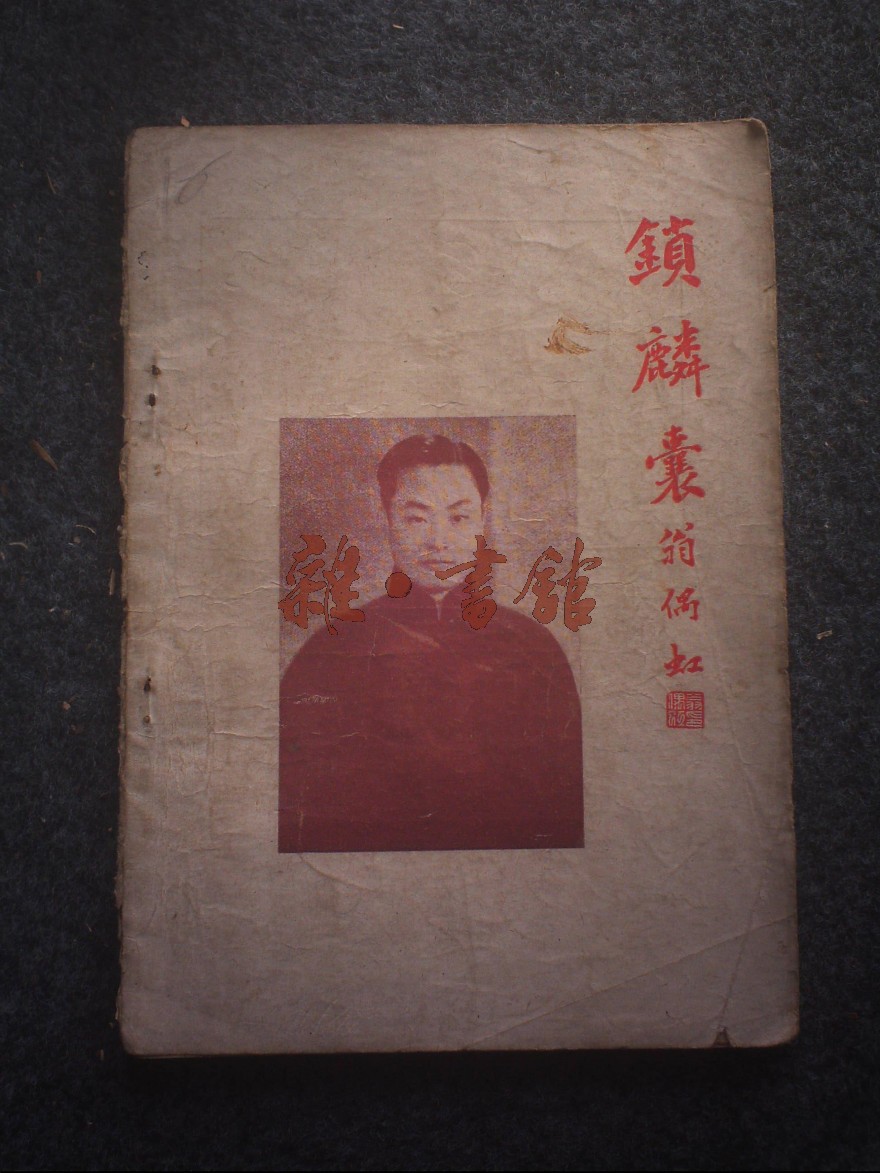 鎖麟囊
翁偶虹
雜·書館